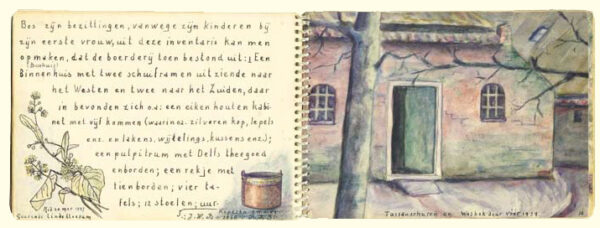 Bos zijn bezittingen, vanwege zijn kinderen bij
zijn eerste vrouw, uit deze inventaris kan men
opmaken, dat de boerderij toen bestond uit: 1 Een
Binnenhuis met twee schuiframen uitziende naar
het Westen en twee naar het Zuiden, daar
in bevonden zich o.a: een eiken houten kabi
net met vijf kommen (waarin o.a. zilveren kop, lepels
enz. en lakens, wijtelings, kussens enz.);
een pulpitrum met Delfs theegoed
en borden; een rekje met
tien borden; vier ta-
fels; 12 stoelen; uur-
Koperen emmer
Midzomer 1997
Linde
Tussenschuren en Washok door 1939